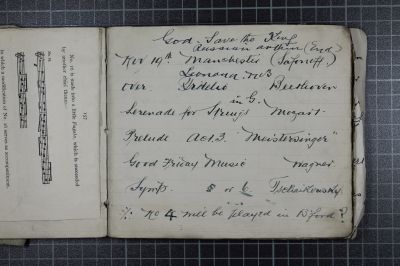 No. 16 is made into a little Fugato, which is succeeded
by another chief theme:—
a modification of No. 16 serves as accompaniment.
God Save the King
Russian anthem (End)
Nov 19th. Manchester (Safonoff)
Leonora: No 3
Over Fidelio Beethoven
in G.
Serenade for Strings Mozart
Prelude Act 3. "Meistersinger"
Good Friday Music Wagner
Symp. 5 or 6 Tschaikowsky
No 4 will be played in B'ford?